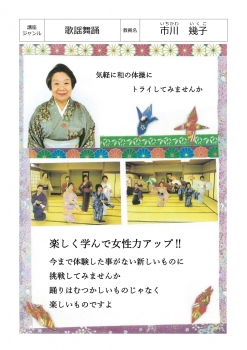 講座ジャンル 歌謡舞踊 教画名 市川 幾子
いちかわ いくこ
気軽に和の体操に
トライしてみませんか
楽しく学んで女性力アップ!!
今まで体験した事がない新しいものに
挑戦してみませんか
踊りはむつかしいものじゃなく
楽しいものですよ